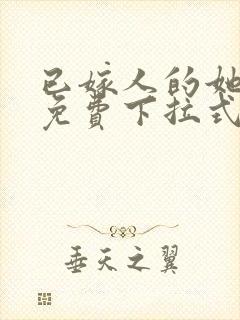 已嫁人的她
免费下拉式
垂天之翼